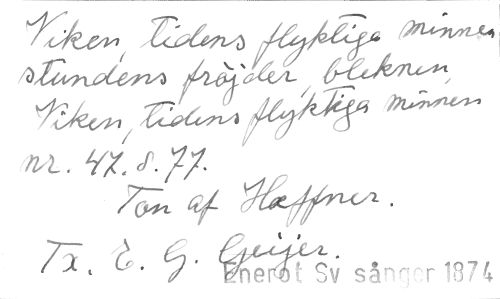 Viken, tidens flyktiga minnen
stundens fröjder, bleknen
Viken, tidens flyktiga minnen
nr. 47. s. 77.
Ton af Hæffner.
Tx. E. G. Geijer.
Enerot Sv sånger 1874